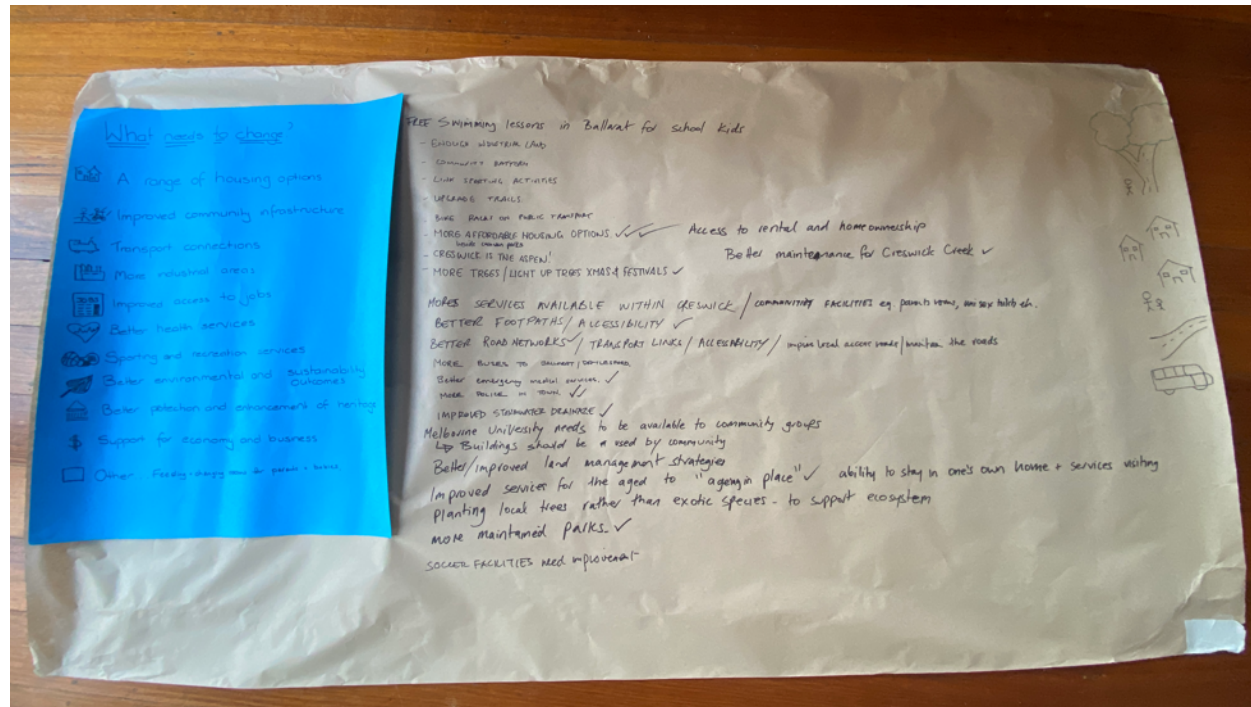 What needs to change?
A range of housing options
Improved community infrastructure
Transport connections
More industrial areas
Improved access to jobs
Better health services
Sporting and recreation services
Better environmental and sustainability
outcomes
Better protection and enhancement of heritage
$ Support for economy and business
Other Feeding + changing areas for parents + babies
FREE Swimming lessons in Ballarat for school kids
- ENOUGH INDUSTRIAL LAND
- COMMUNITY BATTERY
- LINK SPORTING ACTIVITIES
- UPGRADE TRAILS
- BIKE RACKS ON PUBLIC TRANSPORT
- MORE AFFORDABLE HOUSING OPTIONS ✓✓✓ Access to rental and home ownership
- CRESWICK IS THE ASPEN! Better maintenance for Creswick Creek ✓
- MORE TREES / LIGHT UP TREES XMAS & FESTIVALS ✓
MORES SERVICES AVAILABLE WITHIN CRESWICK / COMMUNITY FACILITIES eg. parents rooms, unisex toilets etc.
BETTER FOOTPATHS / ACCESSIBILITY ✓
BETTER ROAD NETWORKS ✓ / TRANSPORT LINKS / ACCESSABILITY / improve local access roads / maintain the roads
MORE BUSES TO BALLARAT / DAYLESFORD
Better emergency medical services. ✓
MORE POLICE IN TOWN. ✓✓
IMPROVED STORMWATER DRAINAGE ✓
Melbourne University needs to be available to community groups
↳ Buildings should be a used by community
Better/improved land management strategies
Improved services for the aged to "ageing in place" ✓ ability to stay in one's own home + services visiting
Planting local trees rather than exotic species - to support ecosystem
more maintained parks. ✓
SOCCER FACILITIES need improvement